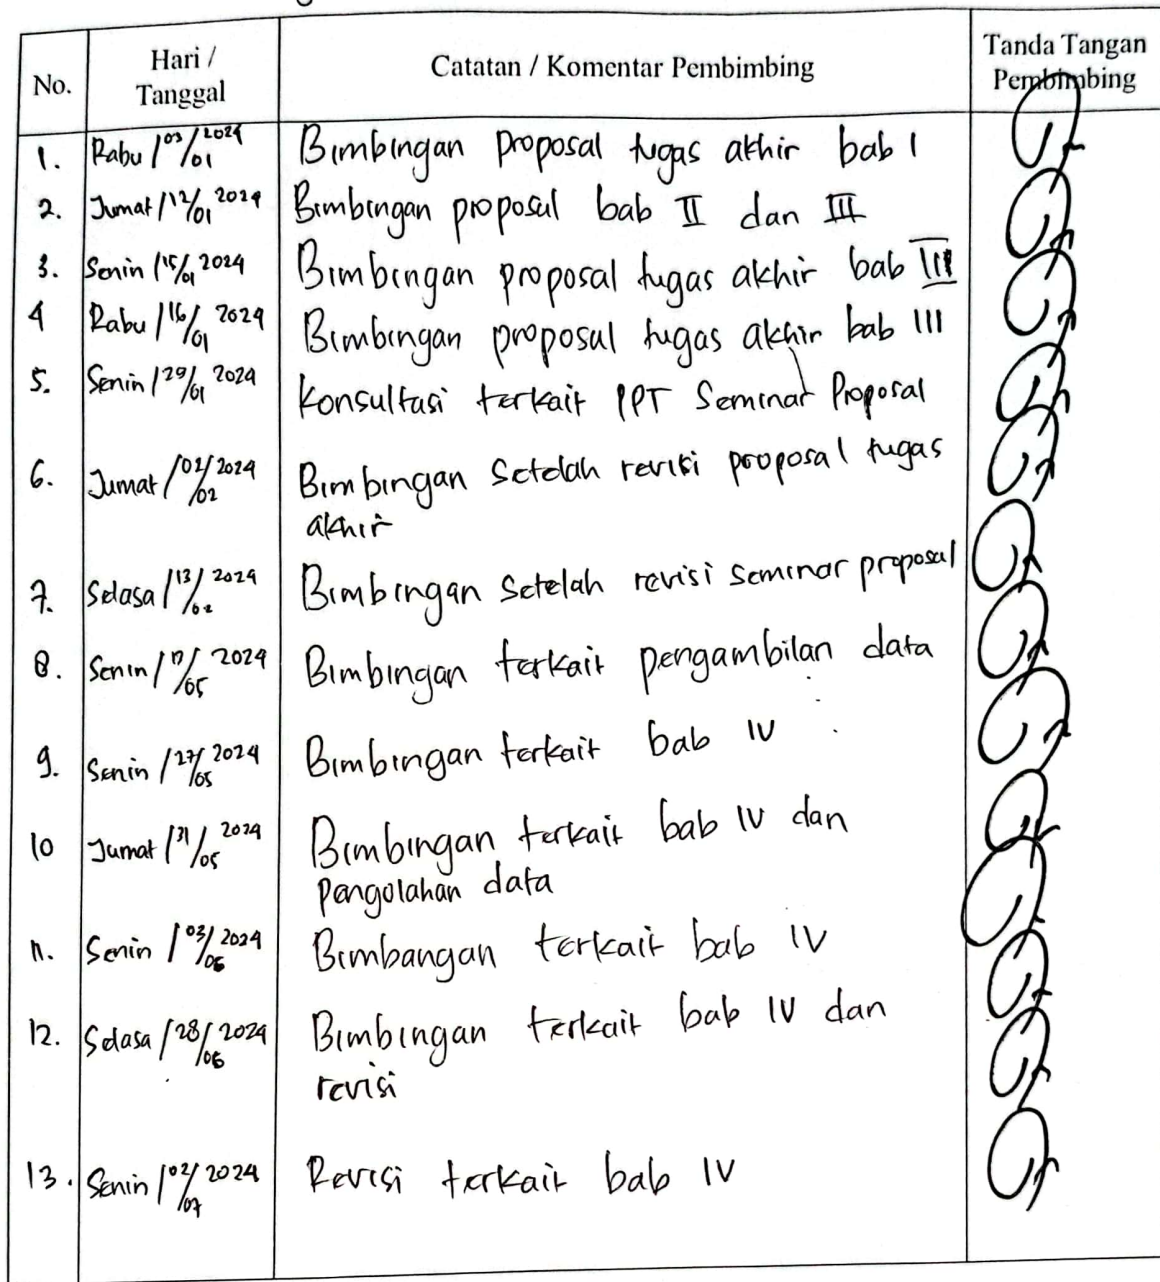 No. Hari / Tanggal Catatan / Komentar Pembimbing Tanda Tangan Pembimbing
1. Rabu / 03/01 2024 Bimbingan proposal tugas akhir bab I
2. Jumat / 12/01 2024 Bimbingan proposal bab II dan III
3. Senin / 15/01 2024 Bimbingan proposal tugas akhir bab III
4 Rabu / 16/01 2024 Bimbingan proposal tugas akhir bab III
5. Senin / 29/01 2024 Konsultasi terkait PPT Seminar Proposal
6. Jumat / 02/02 2024 Bimbingan Setelah revisi proposal tugas
akhir
7. Selasa / 13/02 2024 Bimbingan Setelah revisi seminar proposal
8. Senin / 05 2024 Bimbingan terkait pengambilan data
9. Senin / 27/05 2024 Bimbingan terkait bab IV
10 Jumat / 31/05 2024 Bimbingan terkait bab IV dan
Pengolahan data
11. Senin / 03/06 2024 Bimbangan terkait bab IV
12. Selasa / 28/06 2024 Bimbingan terkait bab IV dan
revisi
13. Senin / 02/07 2024 Revisi terkait bab IV